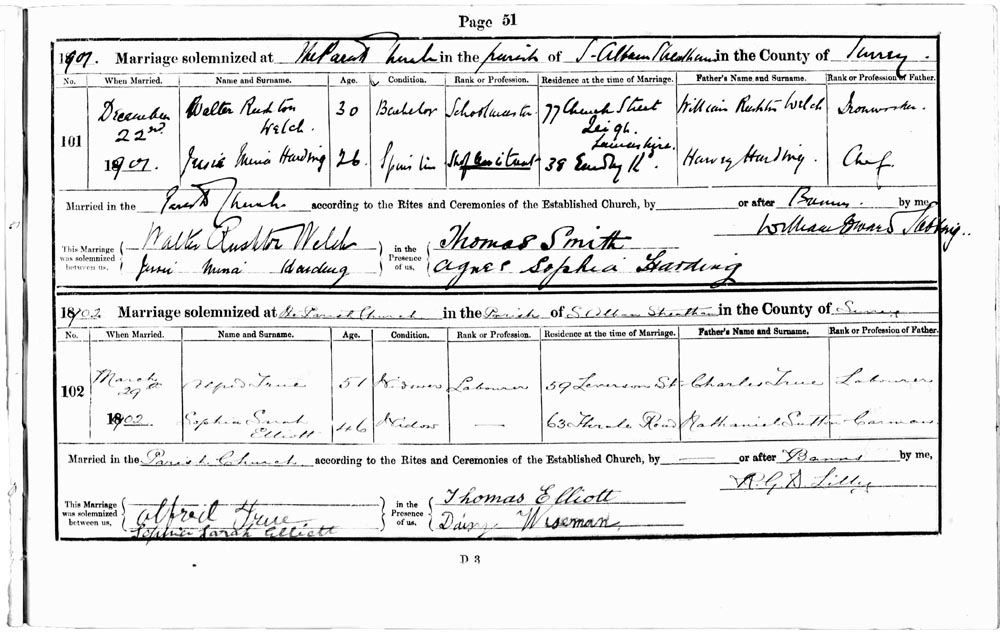 Page 51
1907. Marriage solemnized at The Parish Church in the parish of S. Alban Streatham in the County of Surrey
No. When Married. Name and Surname. Age. Condition. Rank or Profession. Residence at the time of Marriage. Father's Name and Surname. Rank or Profession of Father.
101 December 22nd 1907. Walter Rushton Welch. 30 Bachelor Schoolmaster 77 Church Street Leigh. Lancashire. William Rushton Welch Ironworker.
Jessie Mina Harding 26. Spinster 38 Harvey Harding. Chef
Married in the Parish Church according to the Rites and Ceremonies of the Established Church, by or after Banns by me,
William Edward
This Marriage was solemnized between us, Walter Rushton Welch in the Presence of us, Thomas Smith
Jessie Mina Harding Agnes Sophia Harding
1902. Marriage solemnized at the Parish Church in the Parish of S. Alban Streatham in the County of Surrey
No. When Married. Name and Surname. Age. Condition. Rank or Profession. Residence at the time of Marriage. Father's Name and Surname. Rank or Profession of Father.
102 March 29th 1902 Alfred True 51 Widower Labourer 59 Leverson St. Charles True Labourer
Sophia Sarah Elliott 46 Widow — 63 Thrale Road Nathaniel Sutton Carman
Married in the Parish Church according to the Rites and Ceremonies of the Established Church, by — or after Banns by me,
R. G. D. Lilly
This Marriage was solemnized between us, Alfred True in the Presence of us, Thomas Elliott
Sophia Sarah Elliott Daisy Wiseman
D 3